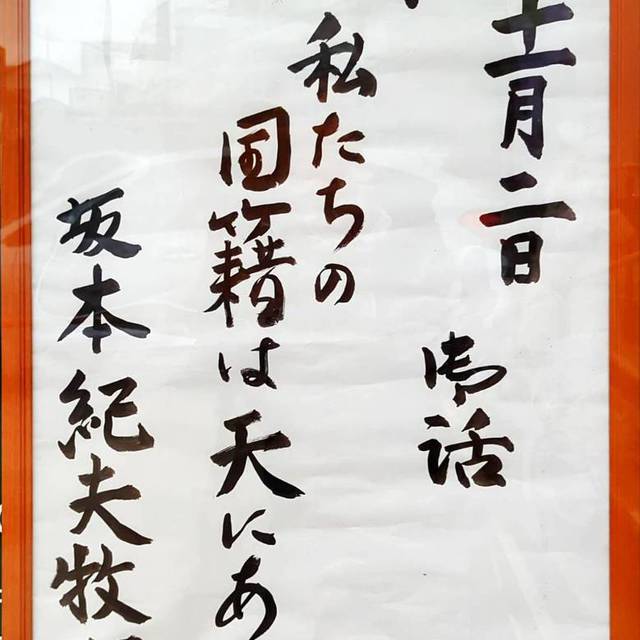 十一月二日
御話
私たちの
国籍は天にあ
坂本紀夫牧